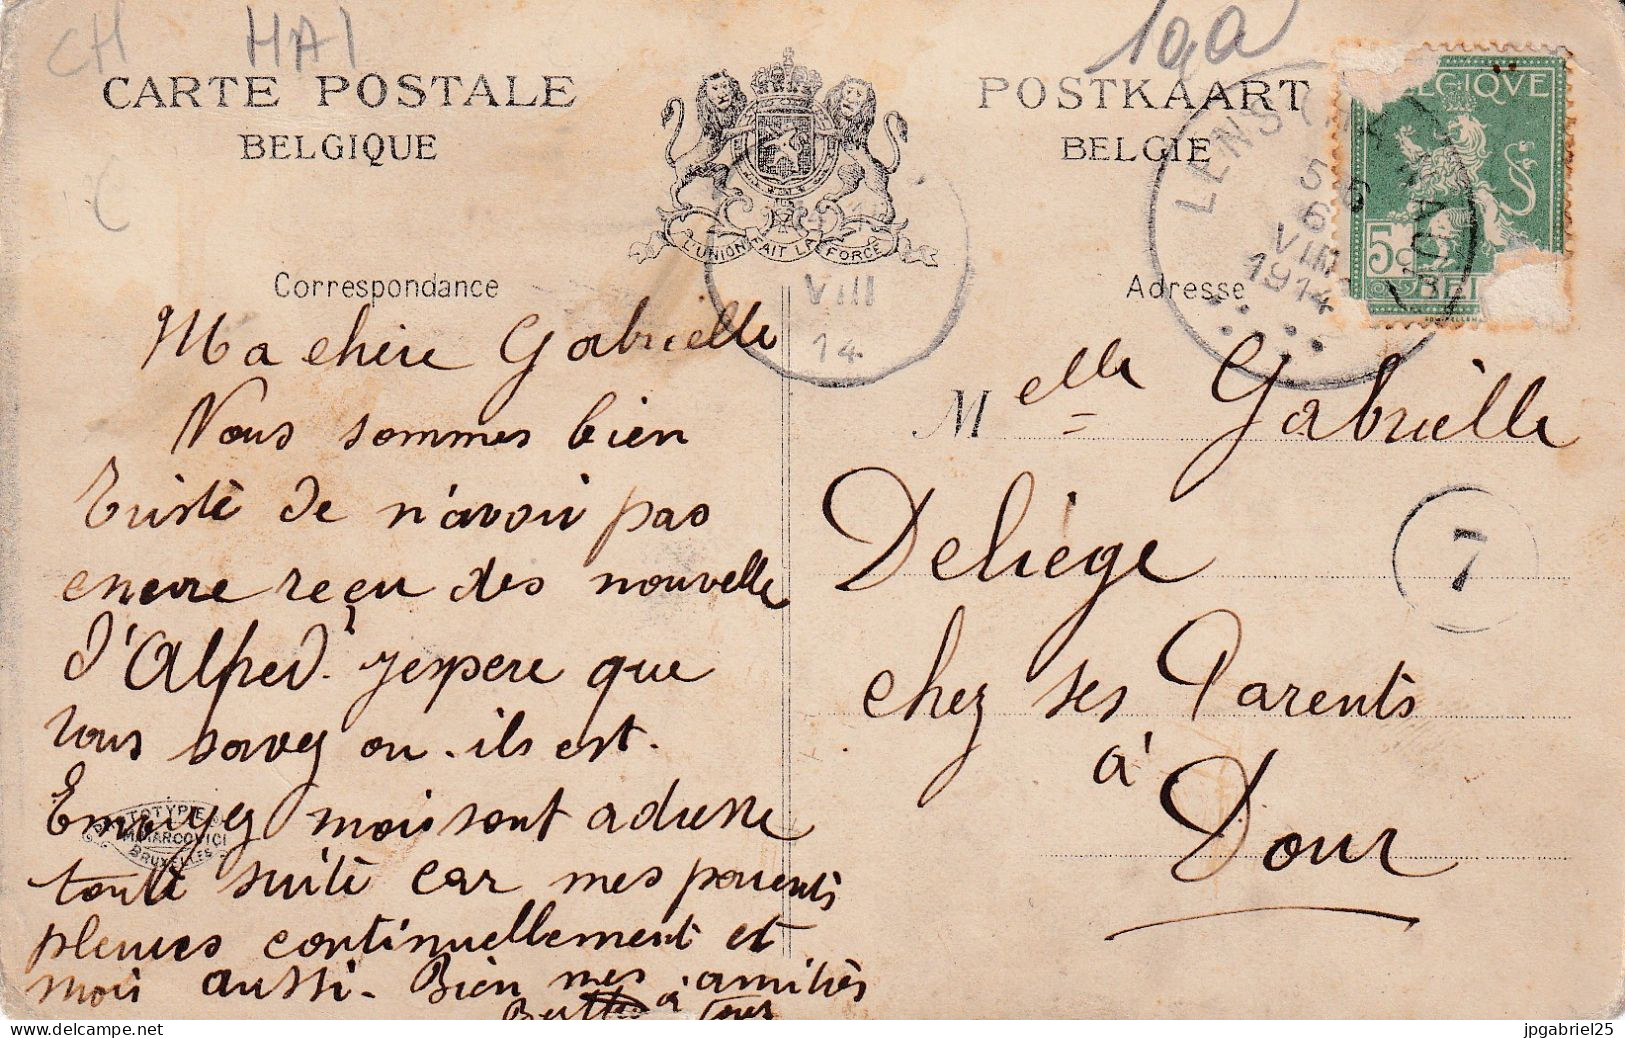 CH HAI
100
CARTE POSTALE
BELGIQUE
L'UNION FAIT LA FORCE
POSTKAART
BELGIE
LENS
5
6
VIII
1914
BELGIQVE
5c
BEL
VIII
14
Correspondance
Adresse
Ma chère Gabrielle
Nous sommes bien
triste de n'avoir pas
encore reçu des nouvelle
d'Alfred. j'espere que
vous savez ou-ils est.
Envoyez moi sont adresse
toute suite car mes parents
pleures continuellement et
moi aussi. Bien mes amitiés
à
PHOTOTYPIE
MARCOVICI
BRUXELLES
Melle Gabrielle
Deliége
chez ses Parents
à
Dour
7
jpgabriel25